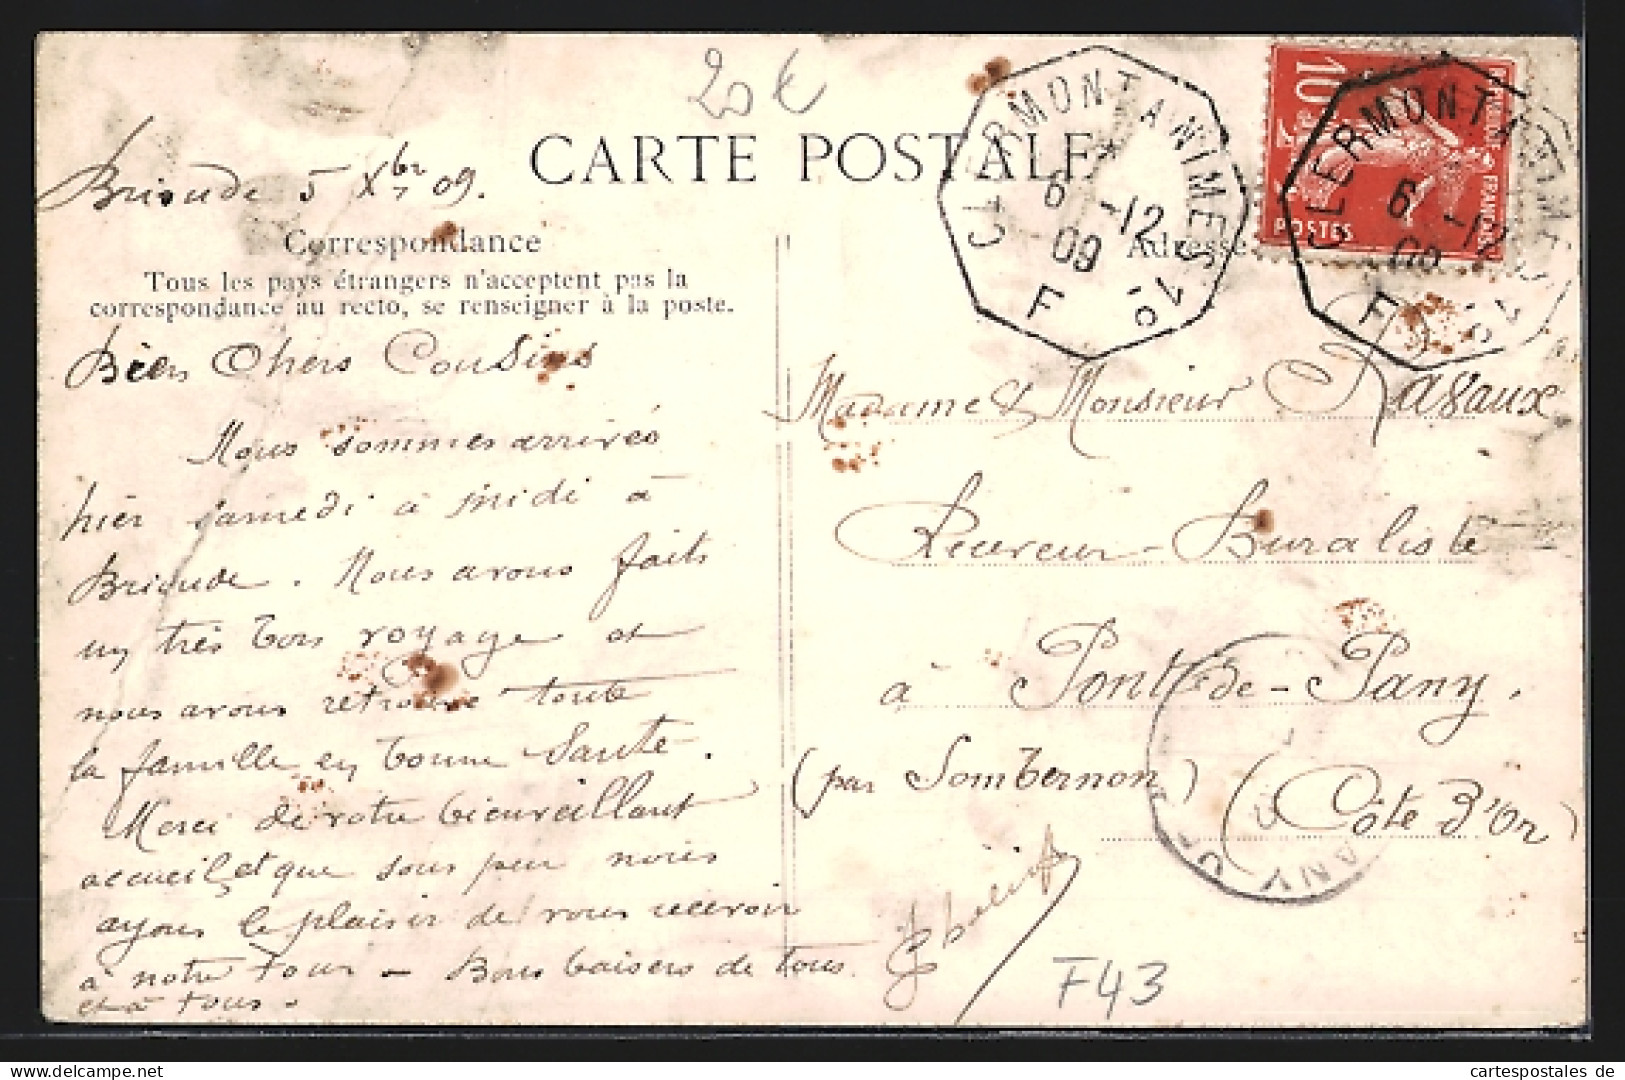 20 €
Brioude 5 Xbre 09.
CARTE POSTALE
Correspondance
Tous les pays étrangers n'acceptent pas la
correspondance au recto, se renseigner à la poste.
Bien Chers Cousins
Nous sommes arrivés
hier samedi à midi à
Brioude. Nous avons faits
un très bon voyage et
nous avons retrouvé toute
la famille en bonne Santé.
Merci de votre bienveillant
accueil, et que sous peu nous
ayons le plaisir de vous recevoir
à notre Tour - Bons baisers de tous
et à Tous.
CLERMONT A NIMES 1º
6 -12
09
F
Adresse
10
POSTES
FRANÇAISE
CLERMONT A NIMES 1º
6 -12
09
F
Madame & Monsieur Ravaux
Receveur-Buraliste
à Pont-de-Pany.
(par Sombernon) (Côte d'Or)
F43
www.cartespostales.de